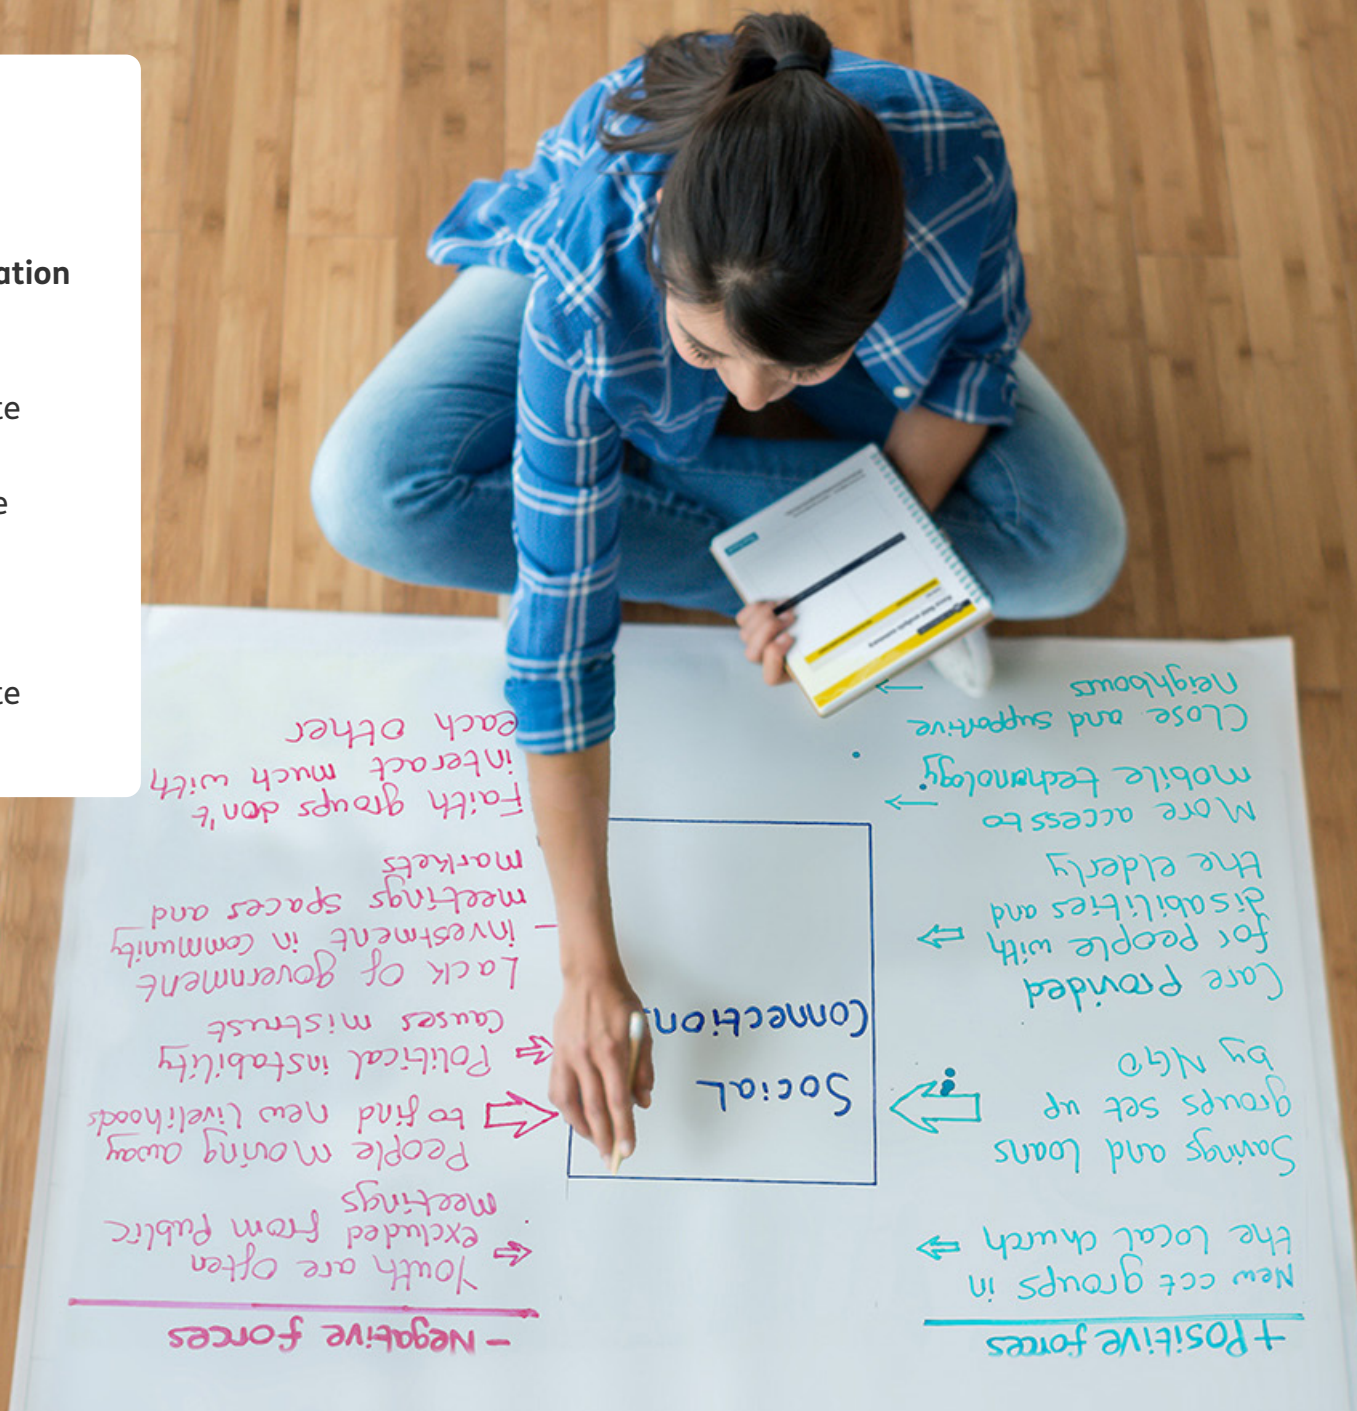 ation
te
e
te
+ Positive forces
New cct groups in
the local church
Savings and Loans
groups set up
by NGO
Care Provided
for people with
disabilities and
the elderly
More access to
mobile techonology
Close and supportive
neighbours
Social
Connection
- Negative forces
Youth are often
excluded from Public
meetings
People moving away
to find new livelihoods
Political instability
causes mistrust
Lack of government
investment in community
meetings spaces and
markets
Faith groups don't
interact much with
each other
Force field analysis summary